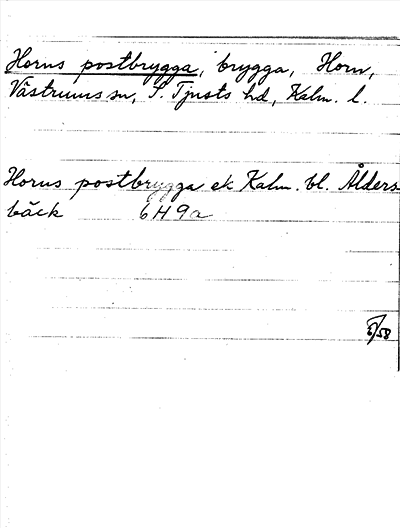 Horns postbrygga, brygga, Horn,
Västrums sn, S. Tjusts hd, Kalm. l.
Horns postbrygga ek Kalm. bl. Ålders
bäck 6H9a
/58